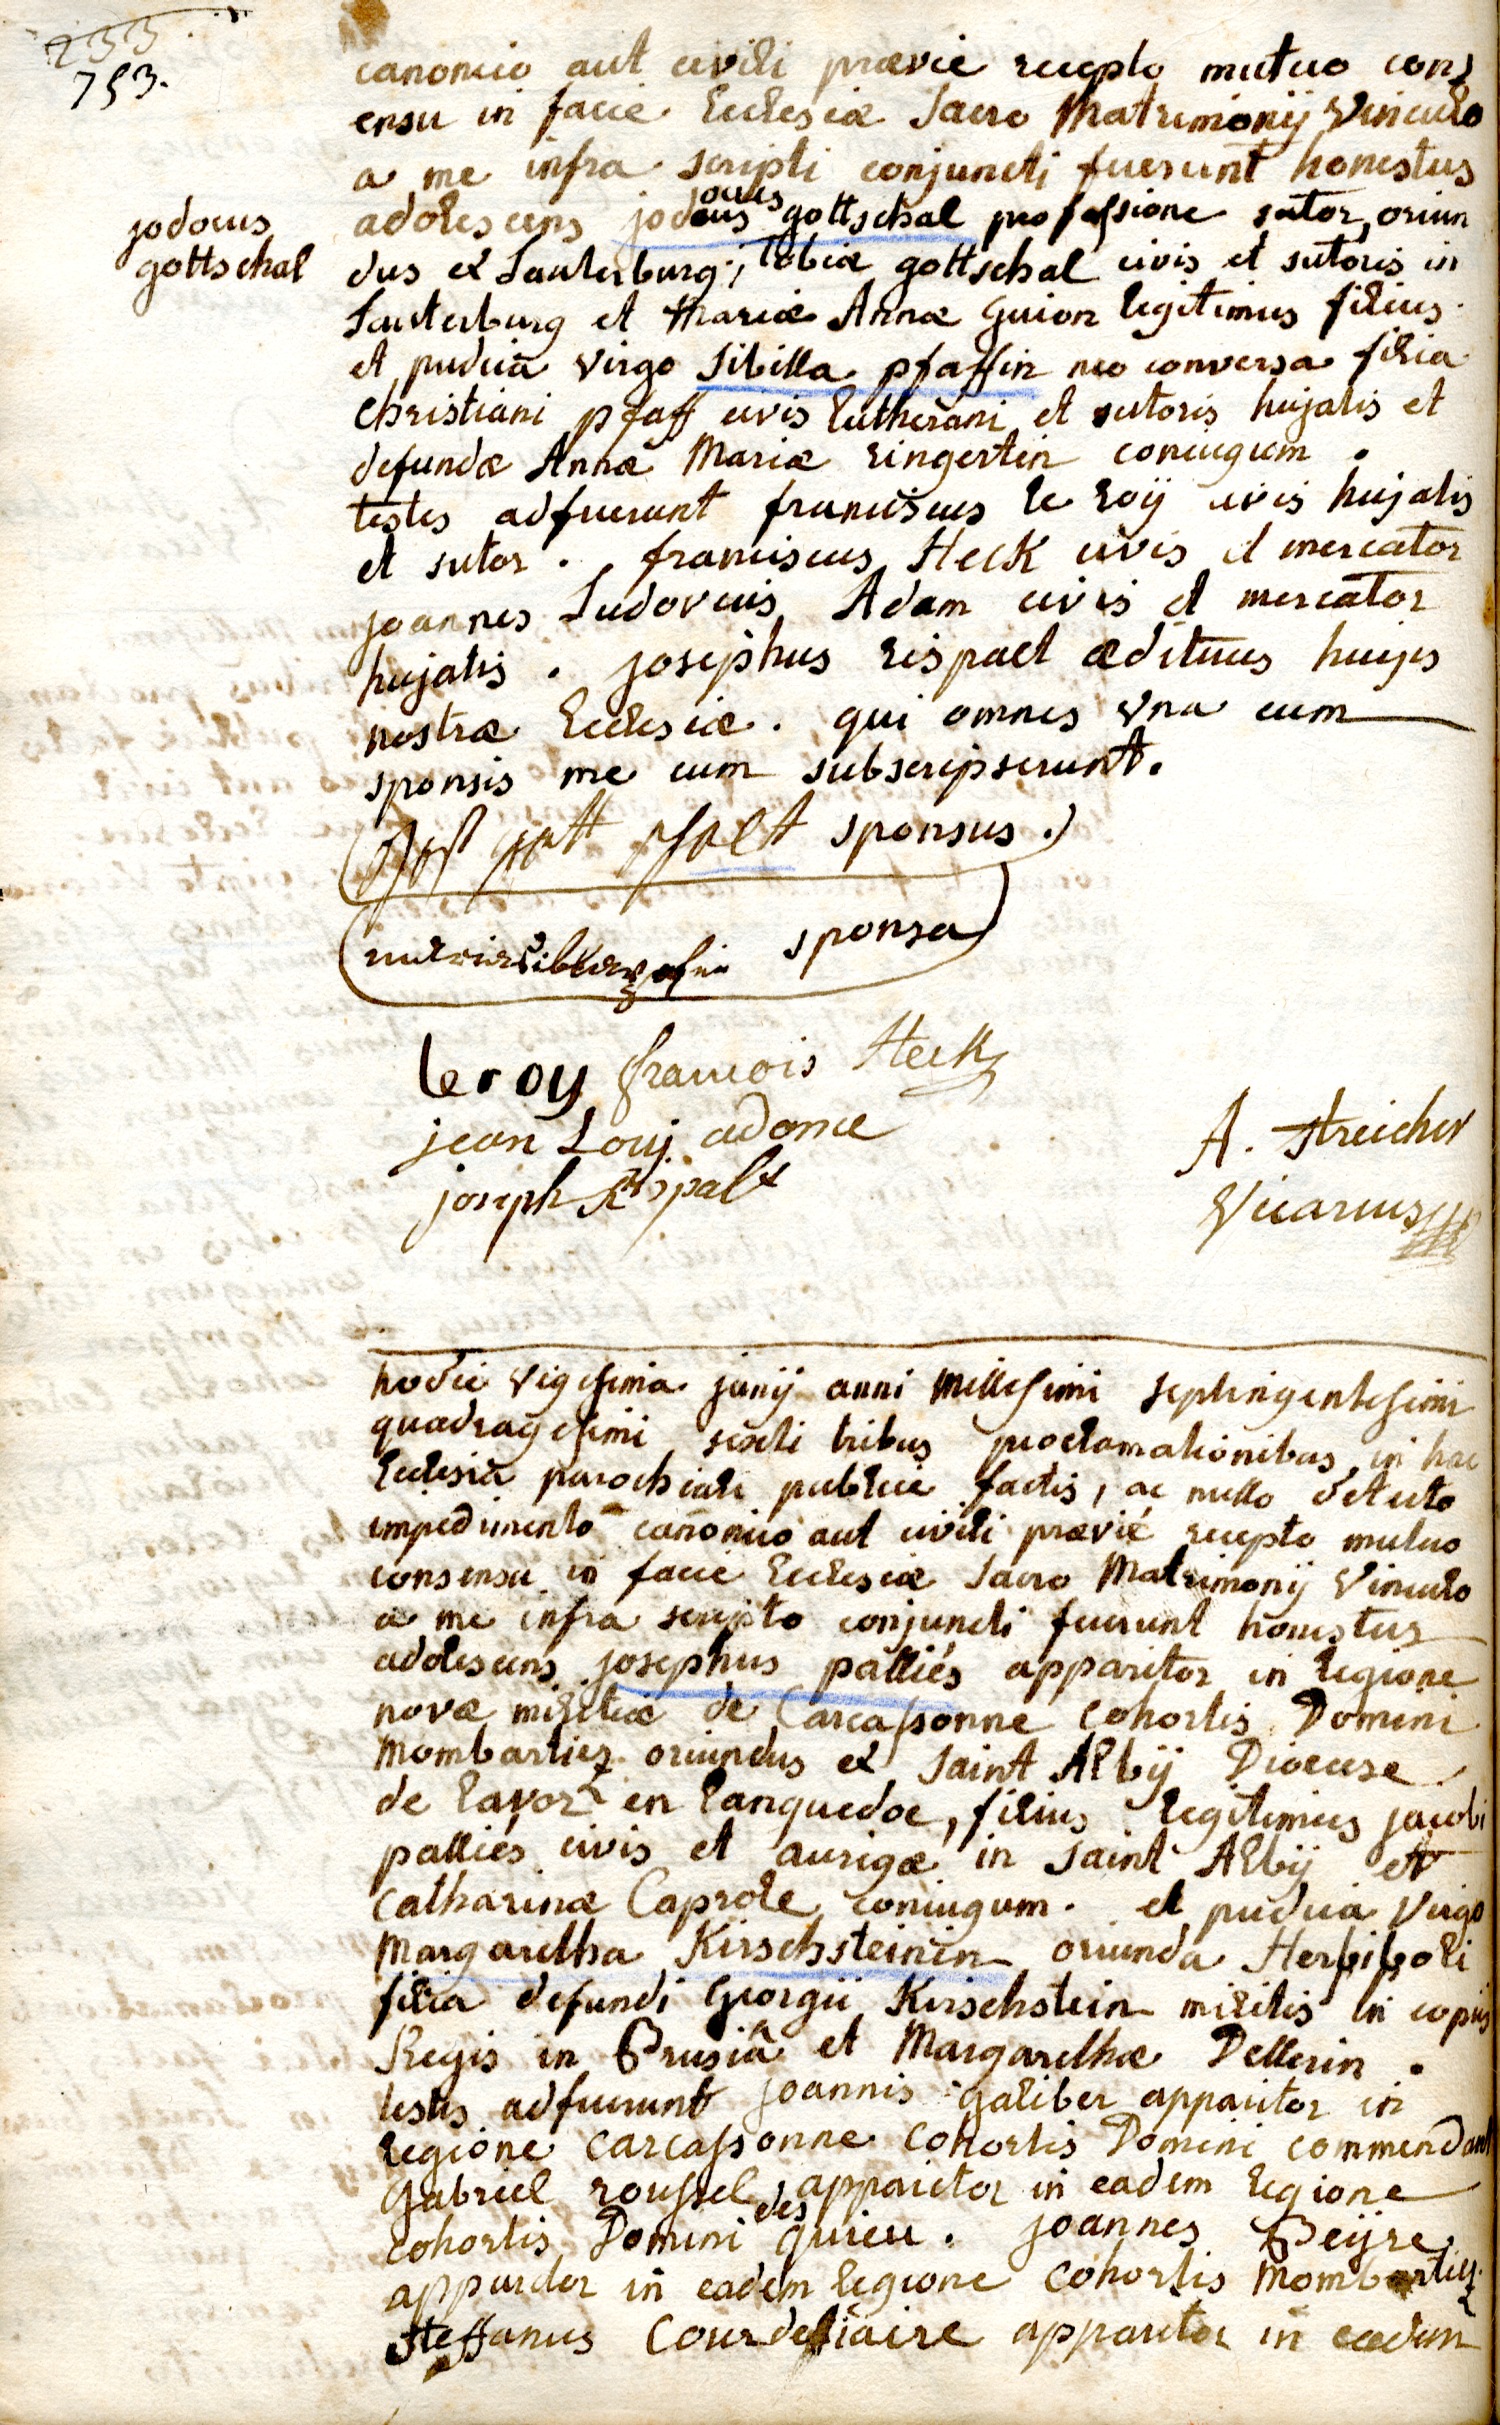 233.
753.
canonico aut civili prævie recepto mutuo cons
ensu in facie Ecclesiæ Sacro Matrimonij Vinculo
a me infra scripti conjuncti fuerunt honestus
jodocus
gottschal
adolescens jodocus gottschal professione sutor, oriun
dus ex Lauterburg, tobiæ gottschal civis et sutoris in
Lauterburg et Mariæ Annæ Guion legitimus filius.
et pudica virgo Sibilla pfaffin neo conversa filia
Christiani pfaff civis Lutherani et sutoris hujatis et
defunctæ Annæ Mariæ ringertin coniugum.
testes adfuerunt franciscus le Roij civis hujatis
et sutor. franciscus Heck civis et mercator
joannes Ludovicus Adam civis et mercator
hujatis. josephus Rispact ædituus hujus
nostræ Ecclesiæ. qui omnes Vna cum
sponsis me cum subscripserunt.
sponsus.
sponsa
leroy francois Heck
jean Louj adame
joseph Rispalt
A. Streicher
Vicarius
hodie Vigesima junij anni Millesimi septingentesimi
quadragesimi sexti tribus proclamationibus in hac
Ecclesiâ parochiali publice factis, ac nullo detecto
impedimento canonico aut civili prævié recepto mutuo
consensu in facie Ecclesiæ Sacro Matrimonij Vinculo
a me infra scripto conjuncti fuerunt honestus
adolescens josephus palliés apparitor in legione
novæ militiæ de Carcassonne Cohortis Domini
Mombartiez oriundus ex Saint Albij Dioecese
de Lavoz en Languedoc, filius legitimus jacobi
palliés civis et aurigæ in Saint Albij et
Catharinæ Caprole coniugum. et pudica Virgo
Margaretha Kirschsteinin oriunda Herbipoli
filia defuncti Georgii Kirschstein militis in copiis
Regis in Prusiâ et Margarethæ Dellerin.
testes adfuerunt joannis galiber apparitor in
legione Carcassonne Cohortis Domini commendant
Gabriel roussel apparitor in eadem legione
cohortis Domini des quieu. joannes Peijre
apparitor in eadem legione Cohortis Mombartiez
Steffanus apparitor in eadem